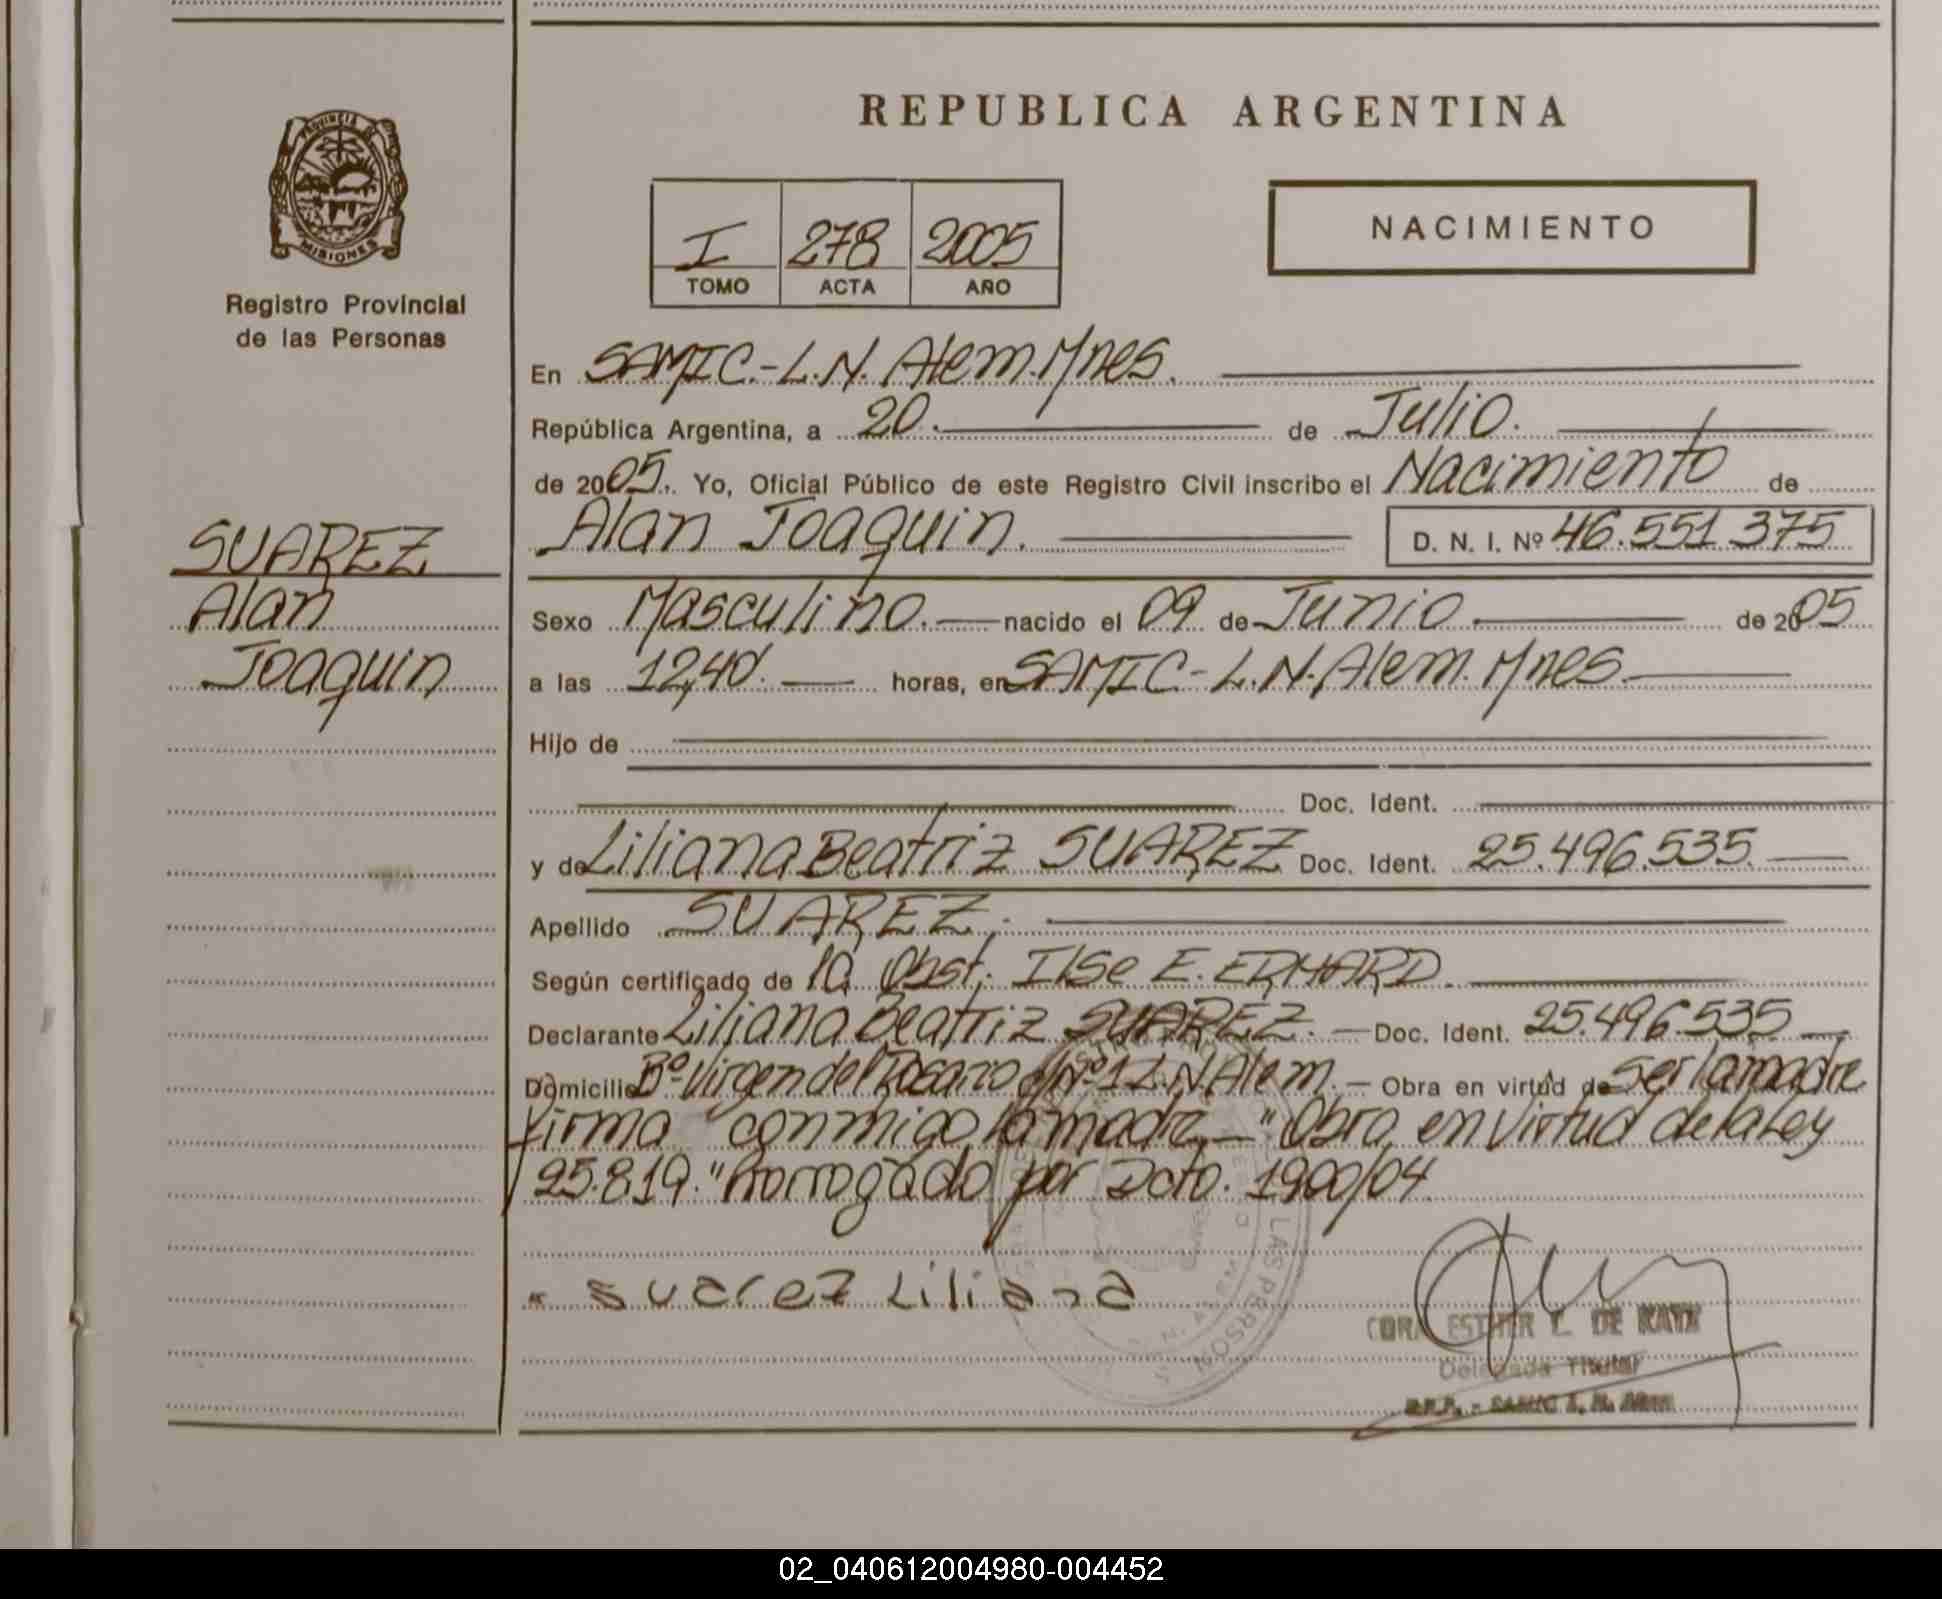 REPUBLICA ARGENTINA
PROVINCIA DE
MISIONES
Registro Provincial
de las Personas
I 278 2005
TOMO ACTA AÑO
NACIMIENTO
En SAMIC.-L.N. Alem. Mnes.
República Argentina, a 20. de Julio.
de 2005. Yo, Oficial Público de este Registro Civil inscribo el Nacimiento de
Alan Joaquin. D. N. I. Nº 46.551.375
SUAREZ
Alan
Joaquin
Sexo Masculino. nacido el 09 de Junio de 2005
a las 12,40. horas, en SAMIC-L.N. Alem. Mnes.
Hijo de
Doc. Ident.
y de Liliana Beatriz SUAREZ Doc. Ident. 25.496.535.
Apellido SUAREZ.
Según certificado de la Obst. Ilse E. ERHARD.
Declarante Liliana Beatriz SUAREZ. Doc. Ident. 25.496.535
Domicilio Bº Virgen del Rosario Nº 1 L.N. Alem. Obra en virtud de ser la madre
firma conmigo la madre "Obra en virtud de la Ley
25.819." Prorrogado por Dcto. 1900/04.
Suarez Liliana
ESTHER DE
Delegada Titular
R.P.P. - SAMIC L. N. Alem
LAS PERSON
02_040612004980-004452